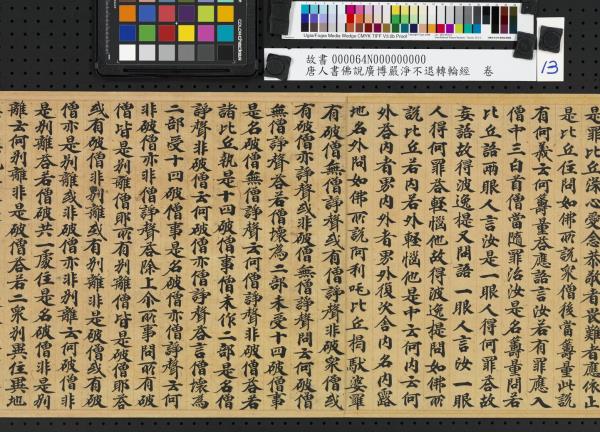 故書 000064N000000000
唐人書佛說廣博嚴淨不退轉輪經　卷
13
Ugra/Fogra Media Wedge CMYK TIFF V3.0b Proof
是罪比丘深心愛念恭敬有畏難者應依止
是比丘住問如佛所說眾僧後當籌量此說
有何義云何籌量答應語言汝若有罪應入
僧中三白首僧當隨罪治汝是名籌量問若
比丘語兩眼人言汝是一眼人得何罪答故
妄語故得波逸提又問語一眼人言汝一眼
人得何罪答輕惱他故得波逸提問如佛所
說比丘若內若外輕惱他是中云何內云何
外答內者界內外者界外復次舍內名內露
地名外問如佛所說阿利吒比丘
有破僧無諍聲非破眾僧或
有破僧諍聲或非破僧無僧諍聲云何破僧
無僧諍聲答若僧壞為二部未受十四破僧事
是名破僧無僧諍聲云何僧諍聲非破僧答若
諸比丘執是十四破僧事僧未作二部是名僧
諍聲非破僧云何破僧亦僧諍聲答言僧壞為
二部受十四破僧事是名破僧亦僧諍聲云何
非破僧亦非僧諍聲答除上尒所事問所有破
僧皆是別離耶所有別離僧皆是破僧耶答
或有破僧非別離或有別離非破僧或有破
僧亦是別離或有非別離云何破僧非
是別離答若僧破共一處住是名破僧非是別
離云何別離非是破僧答若二眾別異住異地